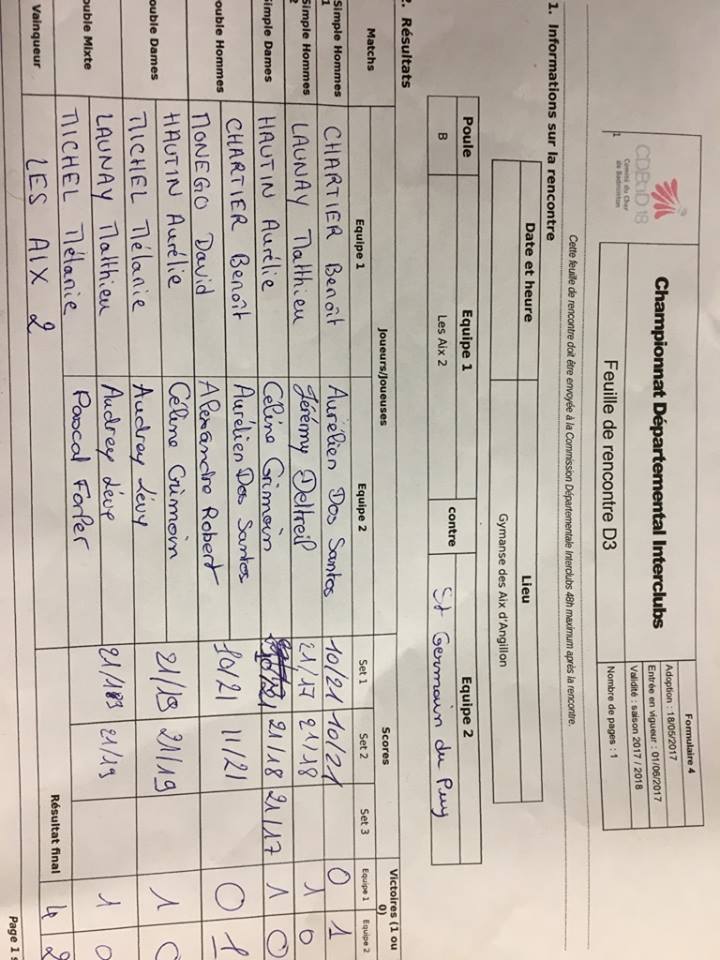 CDBaD 18
Comité du Cher
de Badminton
Championnat Départemental Interclubs
Feuille de rencontre D3
Formulaire 4
Adoption : 18/05/2017
Entrée en vigueur : 01/06/2017
Validité : saison 2017 / 2018
Nombre de pages : 1
Cette feuille de rencontre doit être envoyée à la Commission Départementale Interclubs 48h maximum après la rencontre.
1. Informations sur la rencontre
Date et heure Lieu
Gymanse des Aix d'Angillon
Poule Equipe 1 contre Equipe 2
B Les Aix 2 St Germain du Puy
2. Résultats
Matchs Joueurs/Joueuses Scores Victoires (1 ou 0)
Equipe 1 Equipe 2 Set 1 Set 2 Set 3 Equipe 1 Equipe 2
Simple Hommes 1 CHARTIER Benoît Aurélien Dos Santos 10/21 10/21 0 1
Simple Hommes LAUNAY Matthieu Jérémy Deltreil 21/17 21/18 1 0
Simple Dames HAUTIN Aurélie Céline Grimoin 21/18 21/17 1 0
Double Hommes CHARTIER Benoît Aurélien Dos Santos 11/21 0 1
MONEGO David Alexandre Robert
Double Dames HAUTIN Aurélie Céline Grimoin 21/19 21/19 1
MICHEL Mélanie Audrey Lévy
Double Mixte LAUNAY Matthieu Audrey Lévy 21/19 1 0
MICHEL Mélanie Pascal Forfer
Vainqueur LES AIX 2 Résultat final 4 2
Page 1